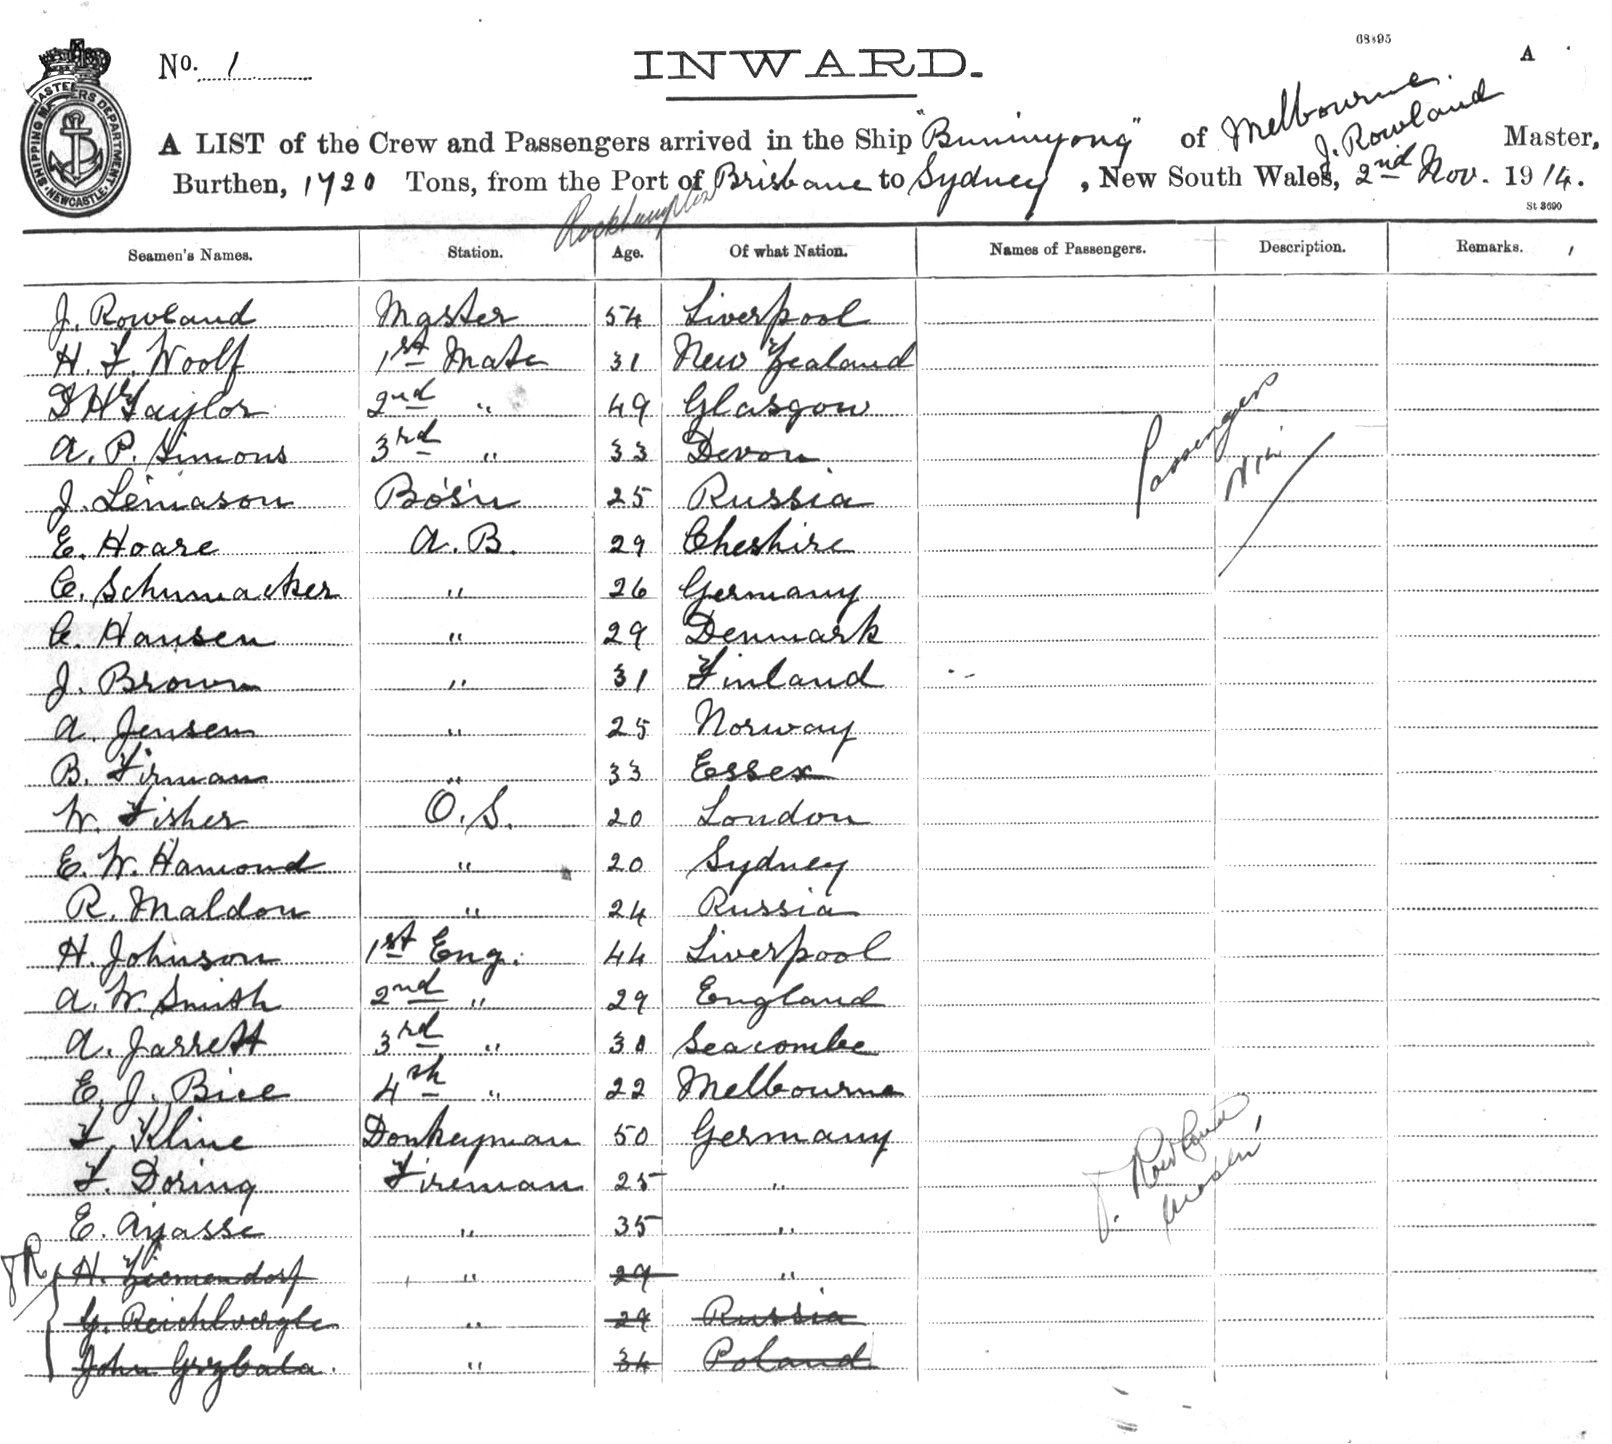 SHIPPING MASTERS DEPARTMENT
NEWCASTLE
No. 1
INWARD.
A
A LIST of the Crew and Passengers arrived in the Ship "Buninyong" of Melbourne. J. Rowland Master,
Burthen, 1720 Tons, from the Port of Brisbane to Sydney, New South Wales, 2nd Nov. 1914.
Rockhampton
St 3690
Seamen's Names. Station. Age. Of what Nation. Names of Passengers. Description. Remarks.
J. Rowland Master 54 Liverpool
H. F. Woolf 1st Mate 31 New Zealand
D H Taylor 2nd " 49 Glasgow
A. P. Simons 3rd " 33 Devon
J. Lemason Bo's'n 25 Russia
E. Hoare A.B. 29 Cheshire
C. Schumacker " 26 Germany
C. Hansen " 29 Denmark
J. Brown " 31 Finland
A. Jensen " 25 Norway
B. Firman " 33 Essex
W. Fisher O.S. 20 London
E. W. Hamond " 20 Sydney
R. Maldon " 24 Russia
H. Johnson 1st Eng. 44 Liverpool
A. W. Smith 2nd " 29 England
A. Jarrett 3rd " 30 Seacombe
E. J. Bice 4th " 22 Melbourne
F. Kline Donkeyman 50 Germany
F. Doring Fireman 25 "
E. Ayasse " 35 "
JR
H. Ziemendorf " 29 "
G. Reichlvergle " 29 Russia
John Grzbala. " 34 Poland
Passengers
Nil
J. Rowland
Master